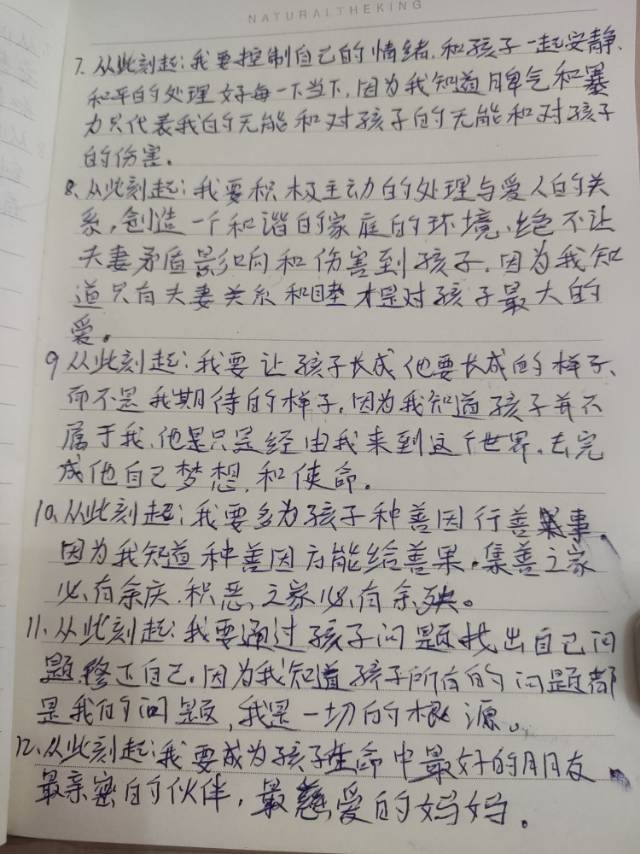 NATURALTHEKING
7. 从此刻起:我要控制自己的情绪,和孩子一起安静、
和平的处理好每一下当下,因为我知道脾气和暴
力只代表我的无能和对孩子的无能和对孩子
的伤害。
8、从此刻起:我要积极主动的处理与爱人的关
系,创造一个和谐的家庭的环境、绝不让
夫妻矛盾影响和伤害到孩子,因为我知
道只有夫妻关系和睦才是对孩子最大的
爱。
9 从此刻起:我要让孩子长成他要长成的样子、
而不是我期待的样子,因为我知道孩子并不
属于我,他是只是经由我来到这个世界、去完
成他自己梦想,和使命。
10、从此刻起:我要多为孩子种善因行善事。
因为我知道种善因方能给善果。集善之家
必有余庆,积恶之家必有余殃。
11、从此刻起:我要通过孩子问题找出自己问
题修正自己。因为我知道孩子所有的问题都
是我的问题,我是一切的根源。
12、从此刻起:我要成为孩子生命中最好的朋友、
最亲密的伙伴,最慈爱的妈妈。